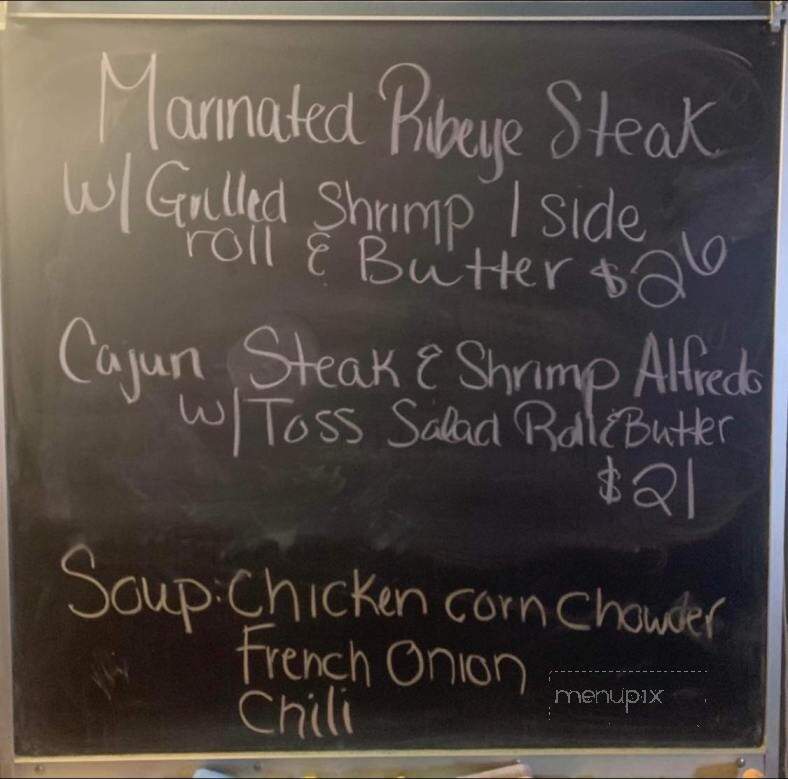 Marinated Ribeye Steak
W/ Grilled Shrimp 1 side
roll & Butter $26
Cajun Steak & Shrimp Alfredo
W/ Toss Salad Roll & Butter
$21
Soup: Chicken corn Chowder
French Onion
Chili
menupix